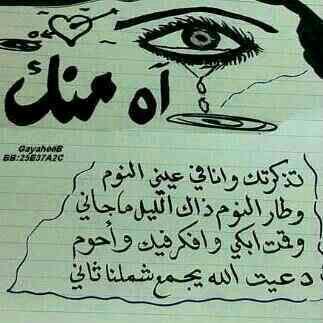 آه منك
GayaheeB
BB:25E37A2C
تذكرتك وانا في عيني النوم
وطار النوم ذاك الليل ماجاني
وقمت ابكي وافكر فيك وأحوم
دعيت الله يجمع شملنا ثاني